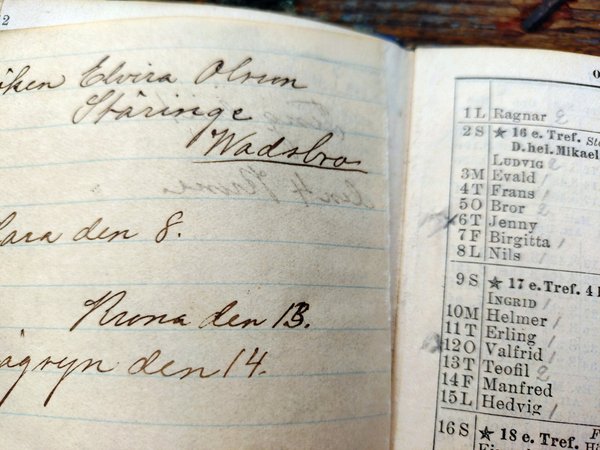 2
Elvira Olsson
Stäringe
Wadsbro
den 8.
Krona den 13.
den 14.
O
1 L Ragnar 2
2 S ★ 16 e. Tref.
D. hel. Mikael
LUDVIG 2
3 M Evald /
4 T Frans /
5 O Bror 2
6 T Jenny
7 F Birgitta /
8 L Nils /
9 S ★ 17 e. Tref. 4
INGRID /
10 M Helmer /
11 T Erling /
12 O Valfrid /
13 T Teofil 2
14 F Manfred
15 L Hedvig /
16 S ★ 18 e. Tref.